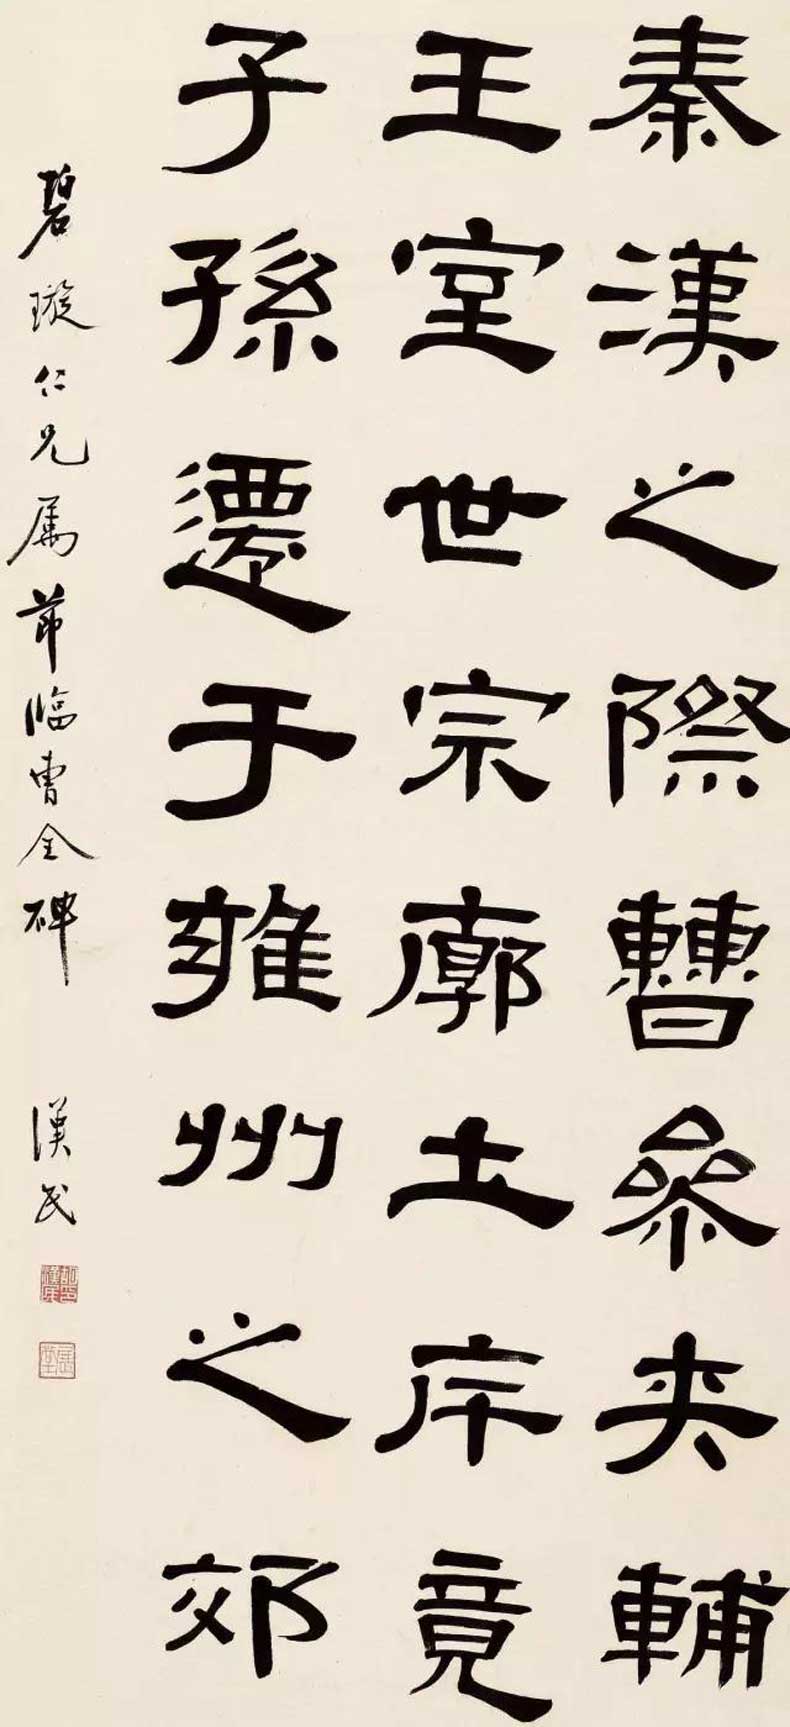 秦漢之際曹參夾輔
王室世宗廓土斥竟
子孫遷于雍州之郊
碧璇仁兄属莭臨曹全碑 漢民
胡漢民印
展堂